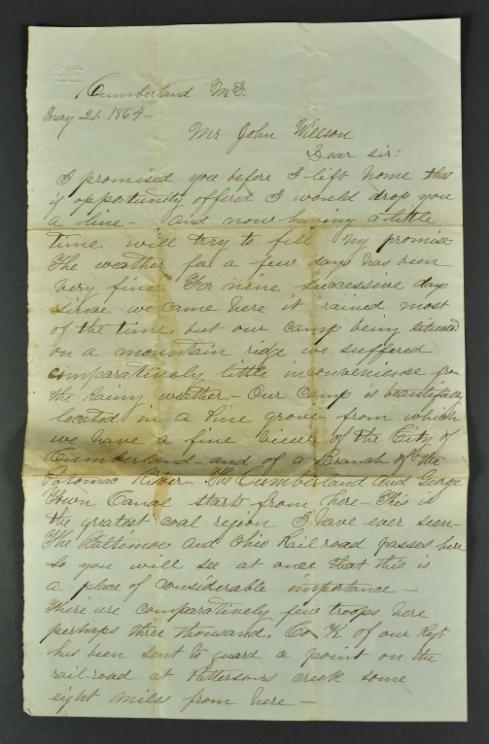 Cumberland M.D.
May 21. 1864-
Mr John Willson
Dear sir:
I promised you before I left home that
if opportunity offered I would drop you
a line - and now having a little
time will try to fill my promise-
The weather for a few days has been
very fine For nine successive days
since we came here it rained most
of the time but our camp being situated
on a mountain ridge we suffered
comparatively little inconvenience from
the Rainy weather - Our Camp is beautifully
located in a Pine grove from which
we have a fine view of the City of
Cumberland - and of a Branch of the
Potomac River - The Cumberland and George
Town Canal starts from here - This is
the greatest coal region I have ever seen-
The Baltimore and Ohio Rail road passes here
so you will see at once that this is
a place of considerable importance -
There are comparatively few troops here
perhaps three thousand. Co K of our Regt
has been sent to guard a point on the
rail-road at Pattersons Creek some
eight miles from here -